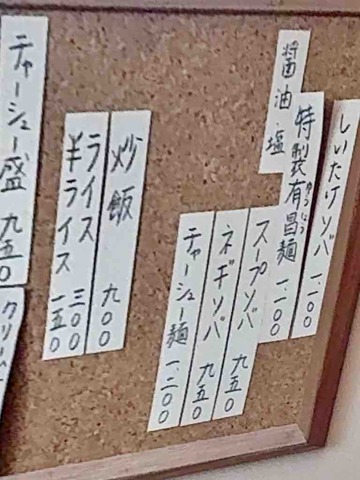 しいたけソバ 一、一〇〇
醤油 塩
特製有昌麺 一、一〇〇
スープソバ 九五〇
ネギソバ 九五〇
チャーシュー麺 一、二〇〇
炒飯 九〇〇
ライス 三〇〇
半ライス 一五〇
チャーシュー盛 九五〇